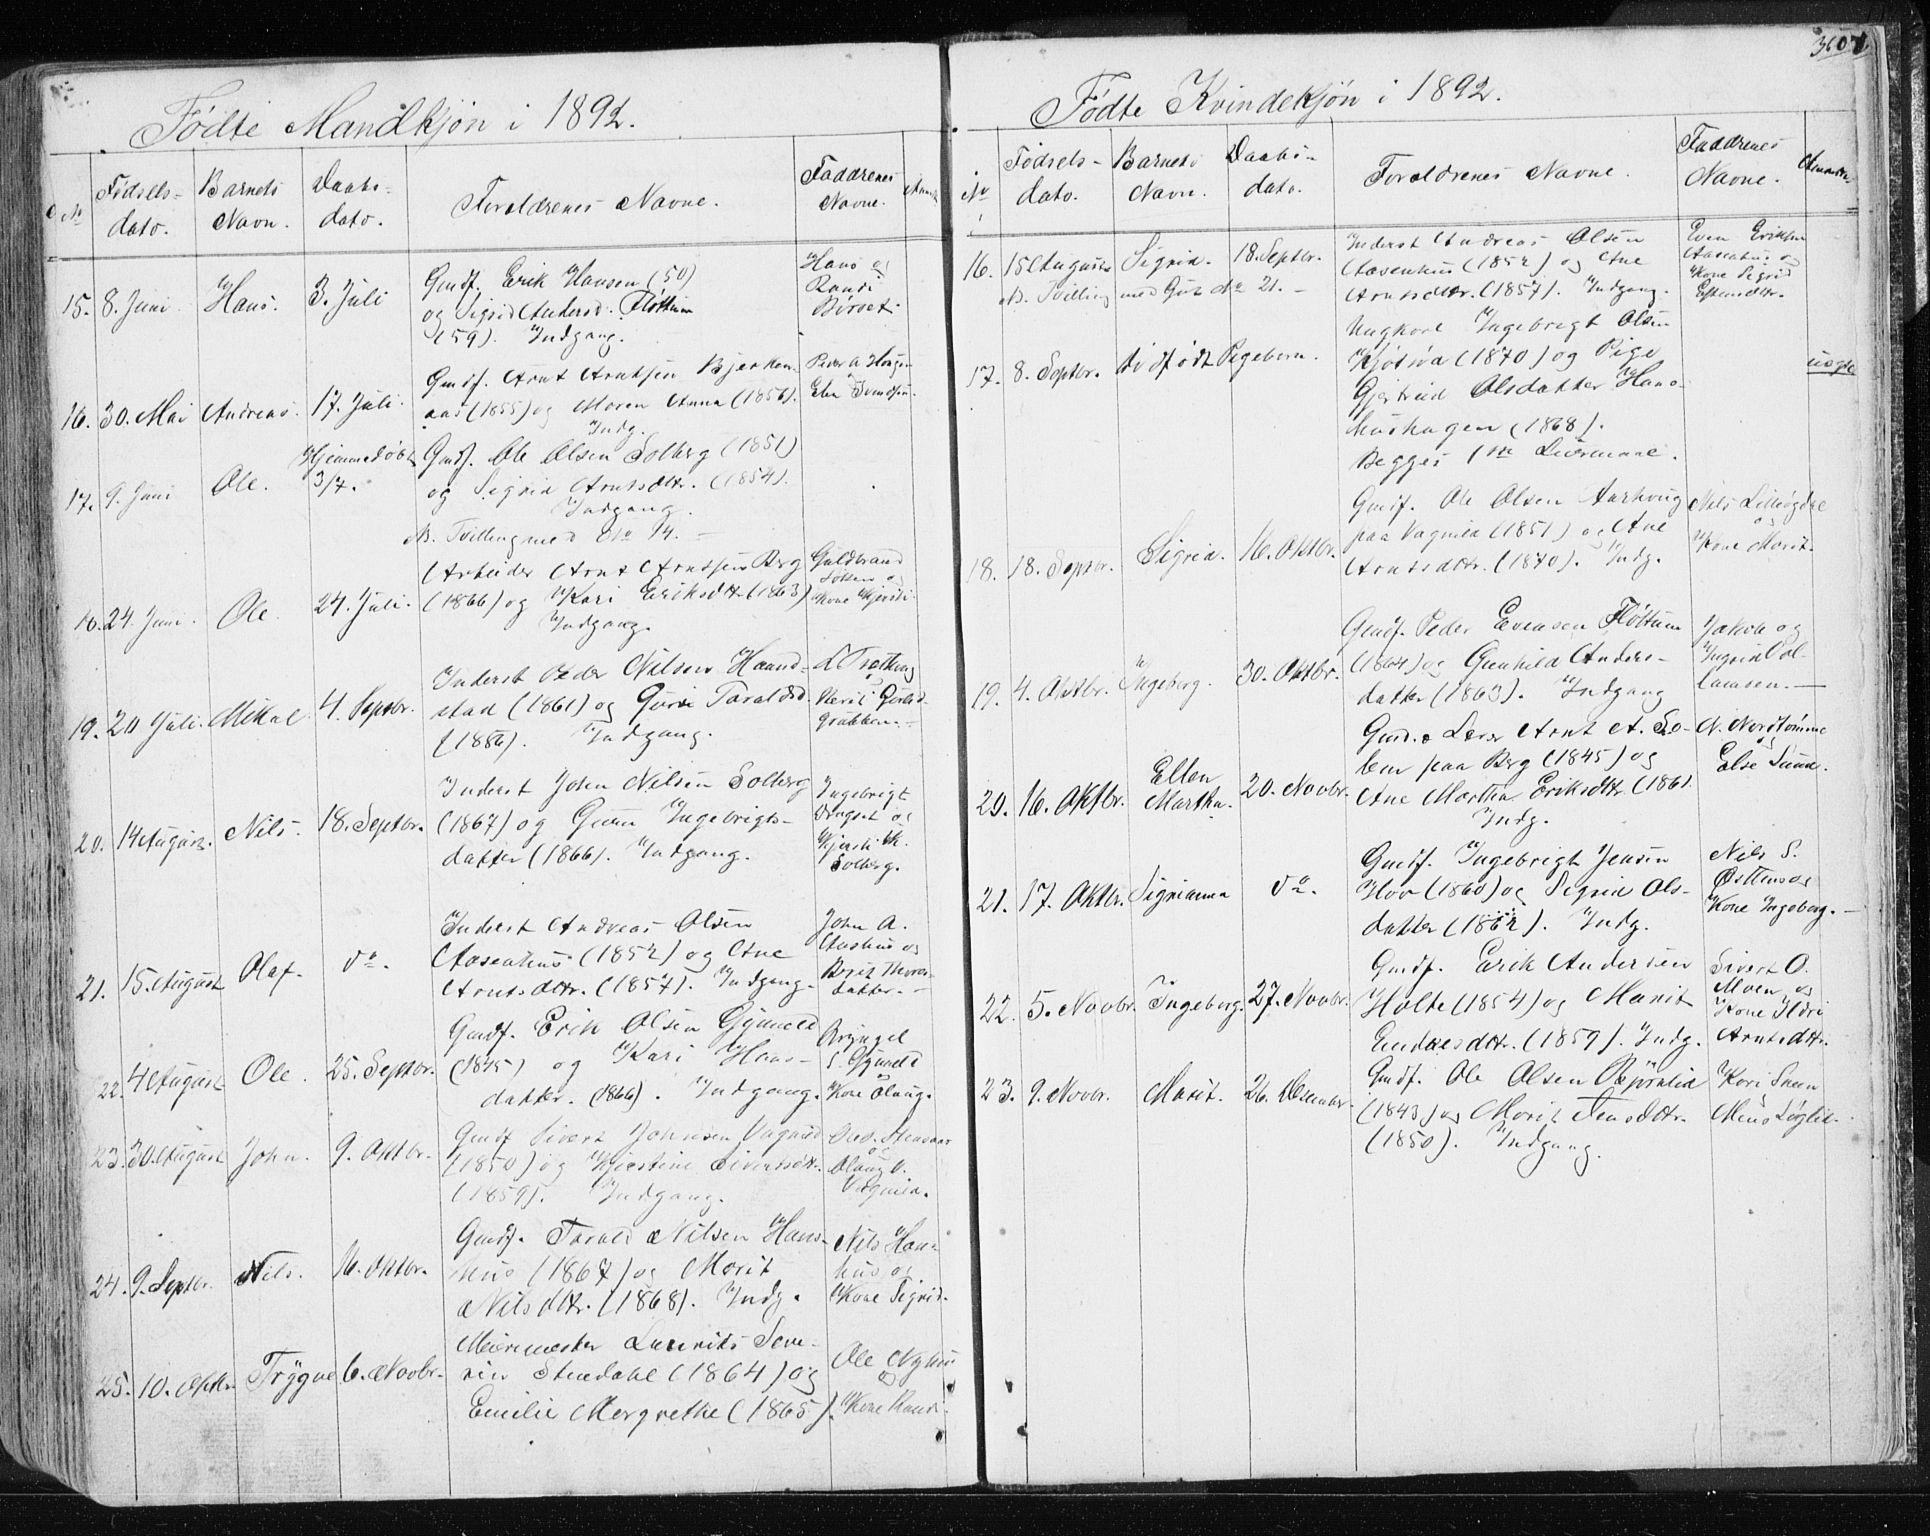 Fødte Mandkjøn i 1892.
No
Fødsels-
dato.
Barnets
Navn.
Daabs-
dato.
Forældrenes Navne.
Faddrenes
Navne.
15. 8. Juni Hans. 3. Juli
Gmdf. Erik Hansen (50)
og Sigrid Andersd. Fløttum
(59). Indgang.
Hans og
Randi
Börset
16. 30. Mai Andreas. 17. Juli.
Gmdf. Arnt Arntsen Bjerken-
aas (1855) og Maren Anna (1856).
Indg.
17. 9. Juni Ole. Hjemmedøbt
3/7.
Gmdf. Ole Olsen Solberg (1851)
og Sigrid Arntsdtr. (1854).
Indgang.
NB. Tvilling med No 14. —
18. 24. Juni Ole 24. Juli.
Arbeider Arnt Arntsen Berg
(1866) og Kari Eriksdtr. (1863)
Indgang.
Guldbrand
og
Kone Kjersti
19. 20 Juli. Mikal 4. Septbr.
Inderst Peder Nilsen Haand-
stad (1861) og Guri Taraldsd.
(1886). Indgang.
20. 14 August. Nils. 18. Septbr.
Inderst John Nilsen Solberg
(1867) og Guru Ingebrigts-
datter (1866). Indgang.
Ingebrigt
og
Solberg.
21. 15. August Olaf. do.
Inderst Andreas Olsen
Aasenhus (1852) og Ane
Arntsdtr. (1857). Indgang.
John A.
Aashus og
Berit Thores-
datter. —
22. 4 August Ole. 25. Septbr.
Gmdf. Erik Olsen Gynneld
(1845) og Kari Hans-
datter. (1866). Indgang.
Brynjel
S. Gynneld
og
Kone Olaug.
23. 30. August John. 9. Oktbr.
Gmdf Sivert Johnsen Vagnild
(1850) og Kjerstine Sivertsdtr.
(1859). Indgang.
og
Olaug O.
Vagnild.
24. 9. Septbr. Nils. 16. Oktbr.
Gmdf. Tarald Nilsen Hans-
hus (1867) og Marit
Nilsdtr. (1868). Indg.
Nils Hans-
hus og
Kone Sigrid.
25. 10. Oktbr. Trygve 6. Novbr.
Meierimester Laurits Seve-
rin Stendahl (1864) og
Emilie Margrethe (1865).
Ole Nyhus
og
Kone Randi.
Fødte Kvindekjøn i 1892.
No
Fødsels-
dato.
Barnets
Navn.
Daabs-
dato.
Forældrenes Navne.
Faddrenes
Navne.
16. 15 August Sigrid. 18. Septbr.
NB. Tvilling med Gut No 21. —
Inderst Andreas Olsen
Aasenhus (1852) og Ane
Arntsdtr. (1857). Indgang.
Even Eriksen
Aasenhus og
Kone Sigrid
Estensdtr.
17. 8. Septbr. dødfødt Pigebarn.
Ungkarl Ingebrigt Olsen
Kjøtvoa (1870) og Pige
Gjertrud Olsdatter Hans-
hushagen (1868).
Begges 1ste Leiermaal.
uægte
18. 18. Septbr. Sigrid. 16. Oktbr.
Gmdf. Ole Olsen Aarhaug
paa Vagnild (1851) og Ane
Arntsdtr. (1870). Indg.
Nils Lilleøgdre
og
Kone Marit.
19. 4. Oktbr. Ingeborg. 30. Oktbr.
Gmdf. Peder Evensen Fløttum
(1864) og Gunhild Anders-
datter (1863). Indgang
Jakob og
Ingrid Ool-
lamsen. —
20. 16. Oktbr. Ellen
Martha. 20. Novbr.
Gmd. o Lærer Arnt A. So-
lem paa Berg (1845) og
Ane Martha Eriksdtr. (1861
Indg.
N. Nordtømme
og
Else Suun.
21. 17. Oktbr. Sigrianna do.
Gmdf. Ingebrigt Jensen
Hov (1860) og Sigrid Ols-
datter (1862). Indg.
Nils S.
Østtens og
Kone Ingeborg. —
22. 5. Novbr. Ingeborg. 27. Novbr.
Gmdf. Erik Andersen
Holte (1854) og Marit
Endresdtr. (1859). Indg.
Sivert O.
Moen og
Kone Ildri
Arntsdtr.
23. 9. Novbr. Marit. 26. Desember.
Gmdf. Ole Olsen Bjørnlid
(1843) og Marit Jensdtr.
(1850). Indgang.